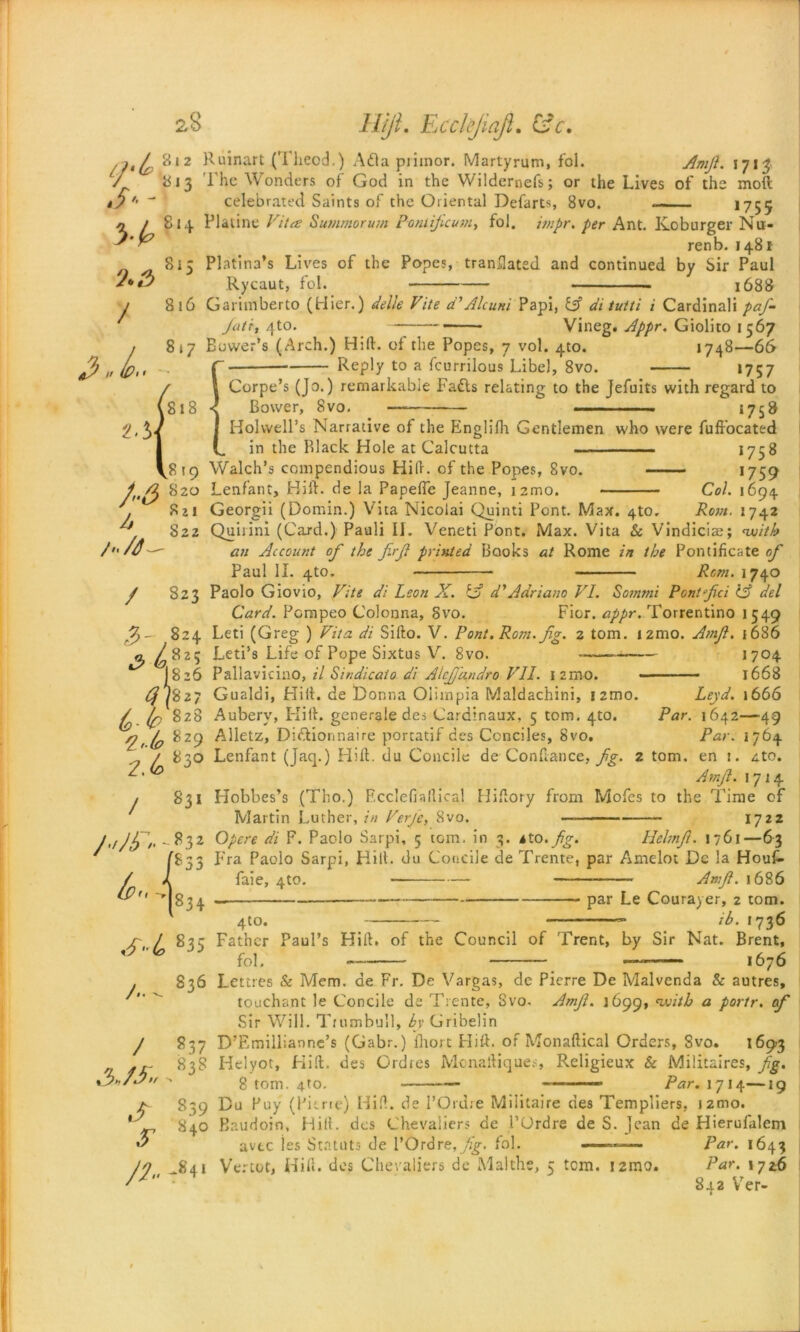 28 Hiſt. Eccleſiaſt. &c.
812 Ruinart (Theod.) Acta primor. Martyrum, fol. Amſt. 1713
813 The Wonders of God in the Wilderneſs; or the Lives of the moſt
celebrated Saints of the Oriental Deſarts, 8vo. —— 1755
814 Platine Vitæ Summorum Pontificum, fol. impr. per Ant. Koburger Nu-
renb. 1481
815 Platina's Lives of the Popes, tranſlated and continued by Sir Paul
Rycaut, fol. —— —— 1688
816 Garimberto (Hier.) delle Vite d'Alcuni Papi, & di tutti i Cardinali paſ-
ſati, 4to. —— —— Vineg. Appr. Giolito 1567
817 Bower's (Arch.) Hiſt. of the Popes, 7 vol. 4to. 1748—66
—— Reply to a ſcurrilous Libel, 8vo. —— 1757
Corpe's (Jo.) remarkable Facts relating to the Jeſuits with regard to
818 Bower, 8vo. —— —— 1758
Holwell's Narrative of the Engliſh Gentlemen who were ſuffocated
in the Black Hole at Calcutta —— 1758
819 Walch's compendious Hiſt. of the Popes, 8vo. —— 1759
820 Lenfant, Hiſt. de la Papeſſe Jeanne, 12mo. —— Col. 1694
821 Georgii (Domin.) Vita Nicolai Quinti Pont. Max. 4to. Rom. 1742
822 Quirini (Card.) Pauli II. Veneti Pont. Max. Vita & Vindiciæ; with
an Account of the firſt printed Books at Rome in the Pontificate of
Paul II. 4to. —— —— Rom. 1740
823 Paolo Giovio, Vite di Leon X. & d'Adriano VI. Sommi Pontefici & del
Card. Pompeo Colonna, 8vo. Fior. appr. Torrentino 1549
824 Leti (Greg ) Vita di Siſto. V. Pont. Rom. fig. 2 tom. 12mo. Amſt. 1686
825 Leti's Life of Pope Sixtus V. 8vo. —— 1704
826 Pallavicino, il Sindicato di Aleſſandro VII. 12mo. —— 1668
827 Gualdi, Hiſt. de Donna Olimpia Maldachini, 12mo. Leyd. 1666
828 Aubery, Hiſt. generale des Cardinaux, 5 tom. 4to. Par. 1642—49
829 Alletz, Dictionnaire portatif des Conciles, 8vo. Par. 1764
830 Lenfant (Jaq.) Hiſt. du Concile de Conſtance, fig. 2 tom. en 1. 4to.
Amſt. 1714
831 Hobbes's (Tho.) Eccleſiaſtical Hiſtory from Moſes to the Time of
Martin Luther, in Verſe, 8vo. —— 1722
832 Opere di F. Paolo Sarpi, 5 tom. in 3. 4to. fig. Helmſt. 1761—63
833 Fra Paolo Sarpi, Hiſt. du Concile de Trente, par Amelot De la Houſ-
ſaie, 4to. —— —— Amſt. 1686
834 —— par Le Courayer, 2 tom.
4to. —— —— ib. 1736
835 Father Paul's Hiſt. of the Council of Trent, by Sir Nat. Brent,
fol. —— —— —— 1676
836 Lettres & Mem. de Fr. De Vargas, de Pierre De Malvenda & autres,
touchant le Concile de Trente, 8vo. Amſt. 1699, with a portr. of
Sir Will. Trumbull, by Gribelin
837 D'Emillianne's (Gabr.) ſhort Hiſt. of Monaſtical Orders, 8vo. 1693
838 Helyot, Hiſt. des Ordres Monaſtiques, Religieux & Militaires, fig.
8 tom. 4to. —— —— Par. 1714—19
839 Du Puy (Pierre) Hiſt. de l'Ordre Militaire des Templiers, 12mo.
840 Baudoin, Hiſt. des Chevaliers de l'Ordre de S. Jean de Hieruſalem
avec les Statuts de l'Ordre, fig. fol. —— Par. 1643
841 Vertot, Hiſt. des Chevaliers de Malthe, 5 tom. 12mo. Par. 1726
842 Ver-